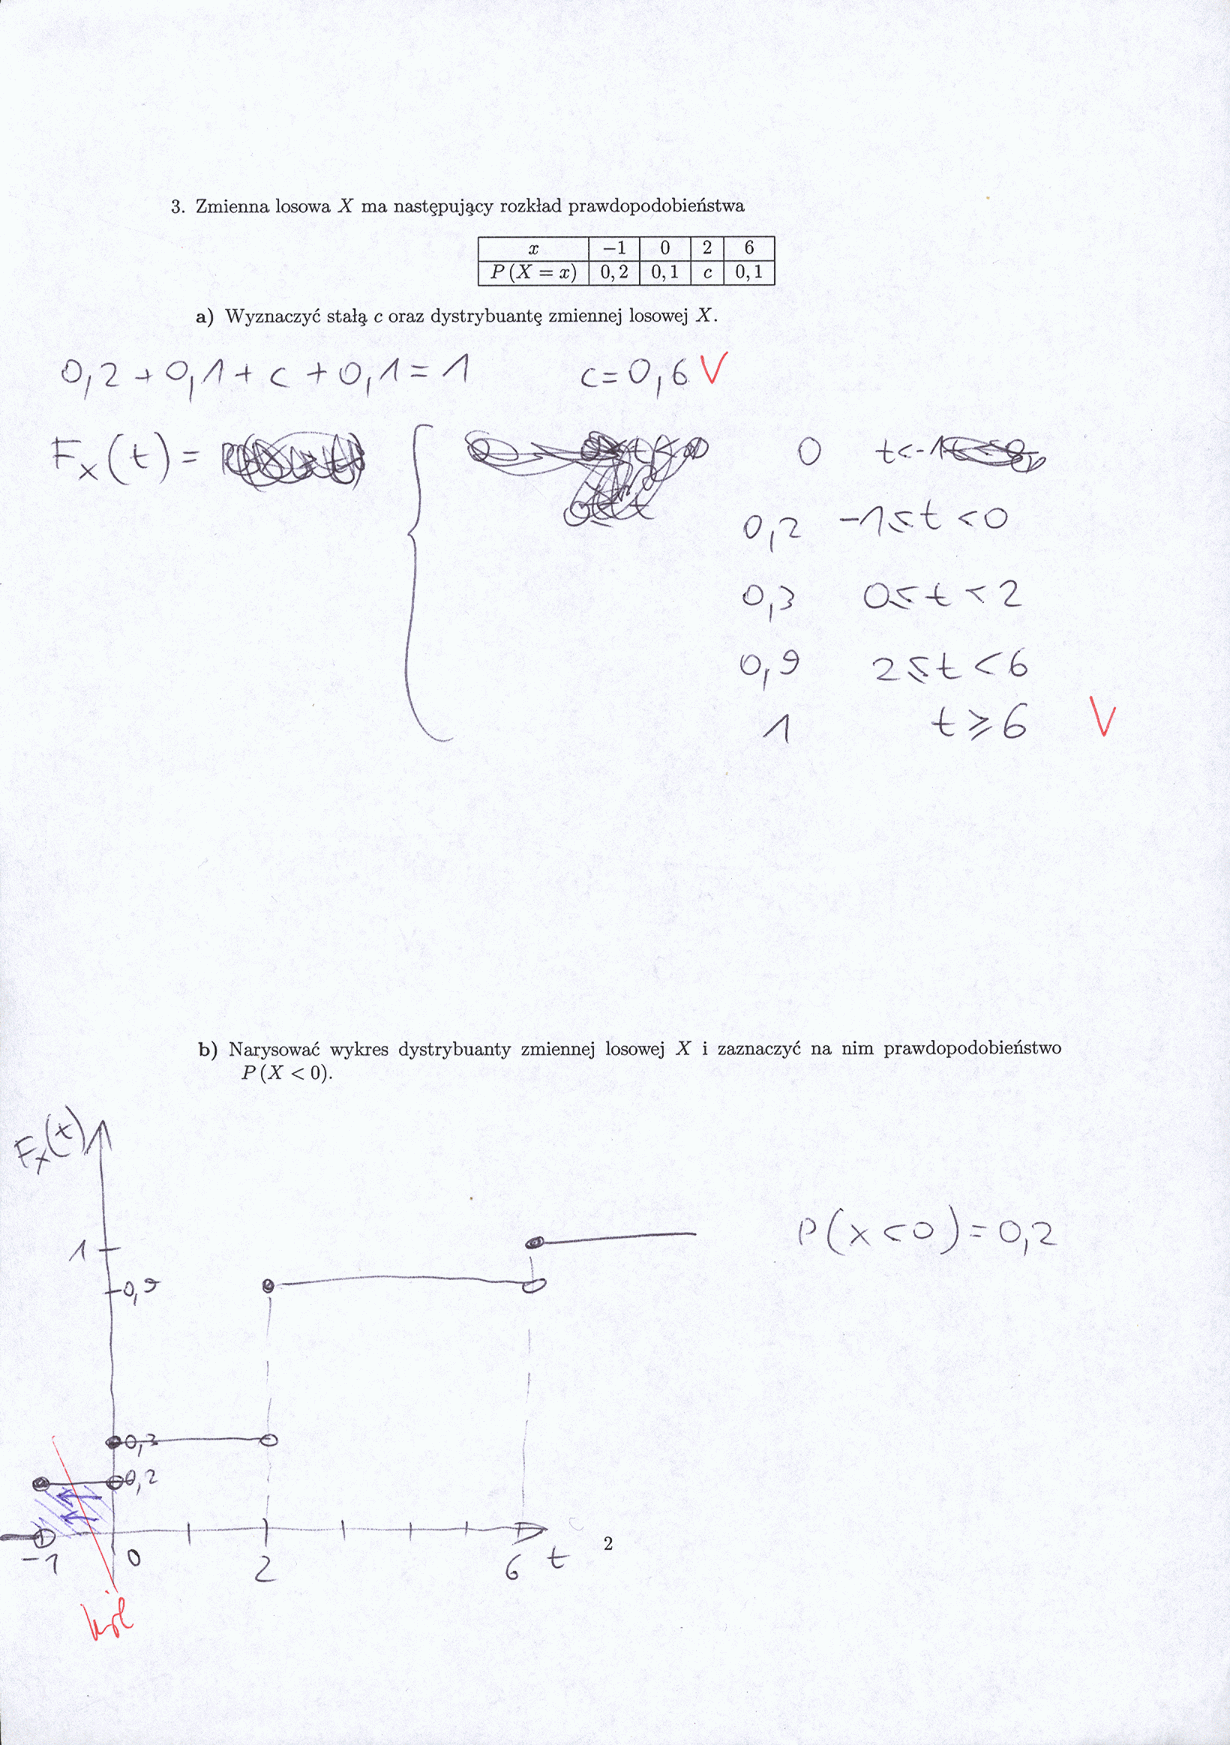 3. Zmienna losowa X ma następujący rozkład prawdopodobieństwa
x −1 0 2 6
P(X = x) 0,2 0,1 c 0,1
a) Wyznaczyć stałą c oraz dystrybuantę zmiennej losowej X.
0,2 + 0,1 + c + 0,1 = 1 c = 0,6 V
F_X(t) = { 0 t<-1
0,2 -1≤t<0
0,3 0≤t<2
0,9 2≤t<6
1 t≥6 V
b) Narysować wykres dystrybuanty zmiennej losowej X i zaznaczyć na nim prawdopodobieństwo
P(X < 0).
F_X(t)
P(X<0)=0,2
1
0,9
0,3
0,2
-1 0 2 6 t
2